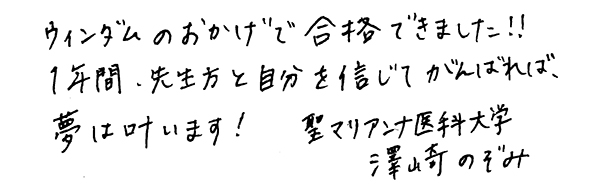 ウィンダムのおかげで合格できました!!
1年間、先生方と自分を信じてがんばれば、
夢は叶います! 聖マリアンナ医科大学
澤山奇のぞみ